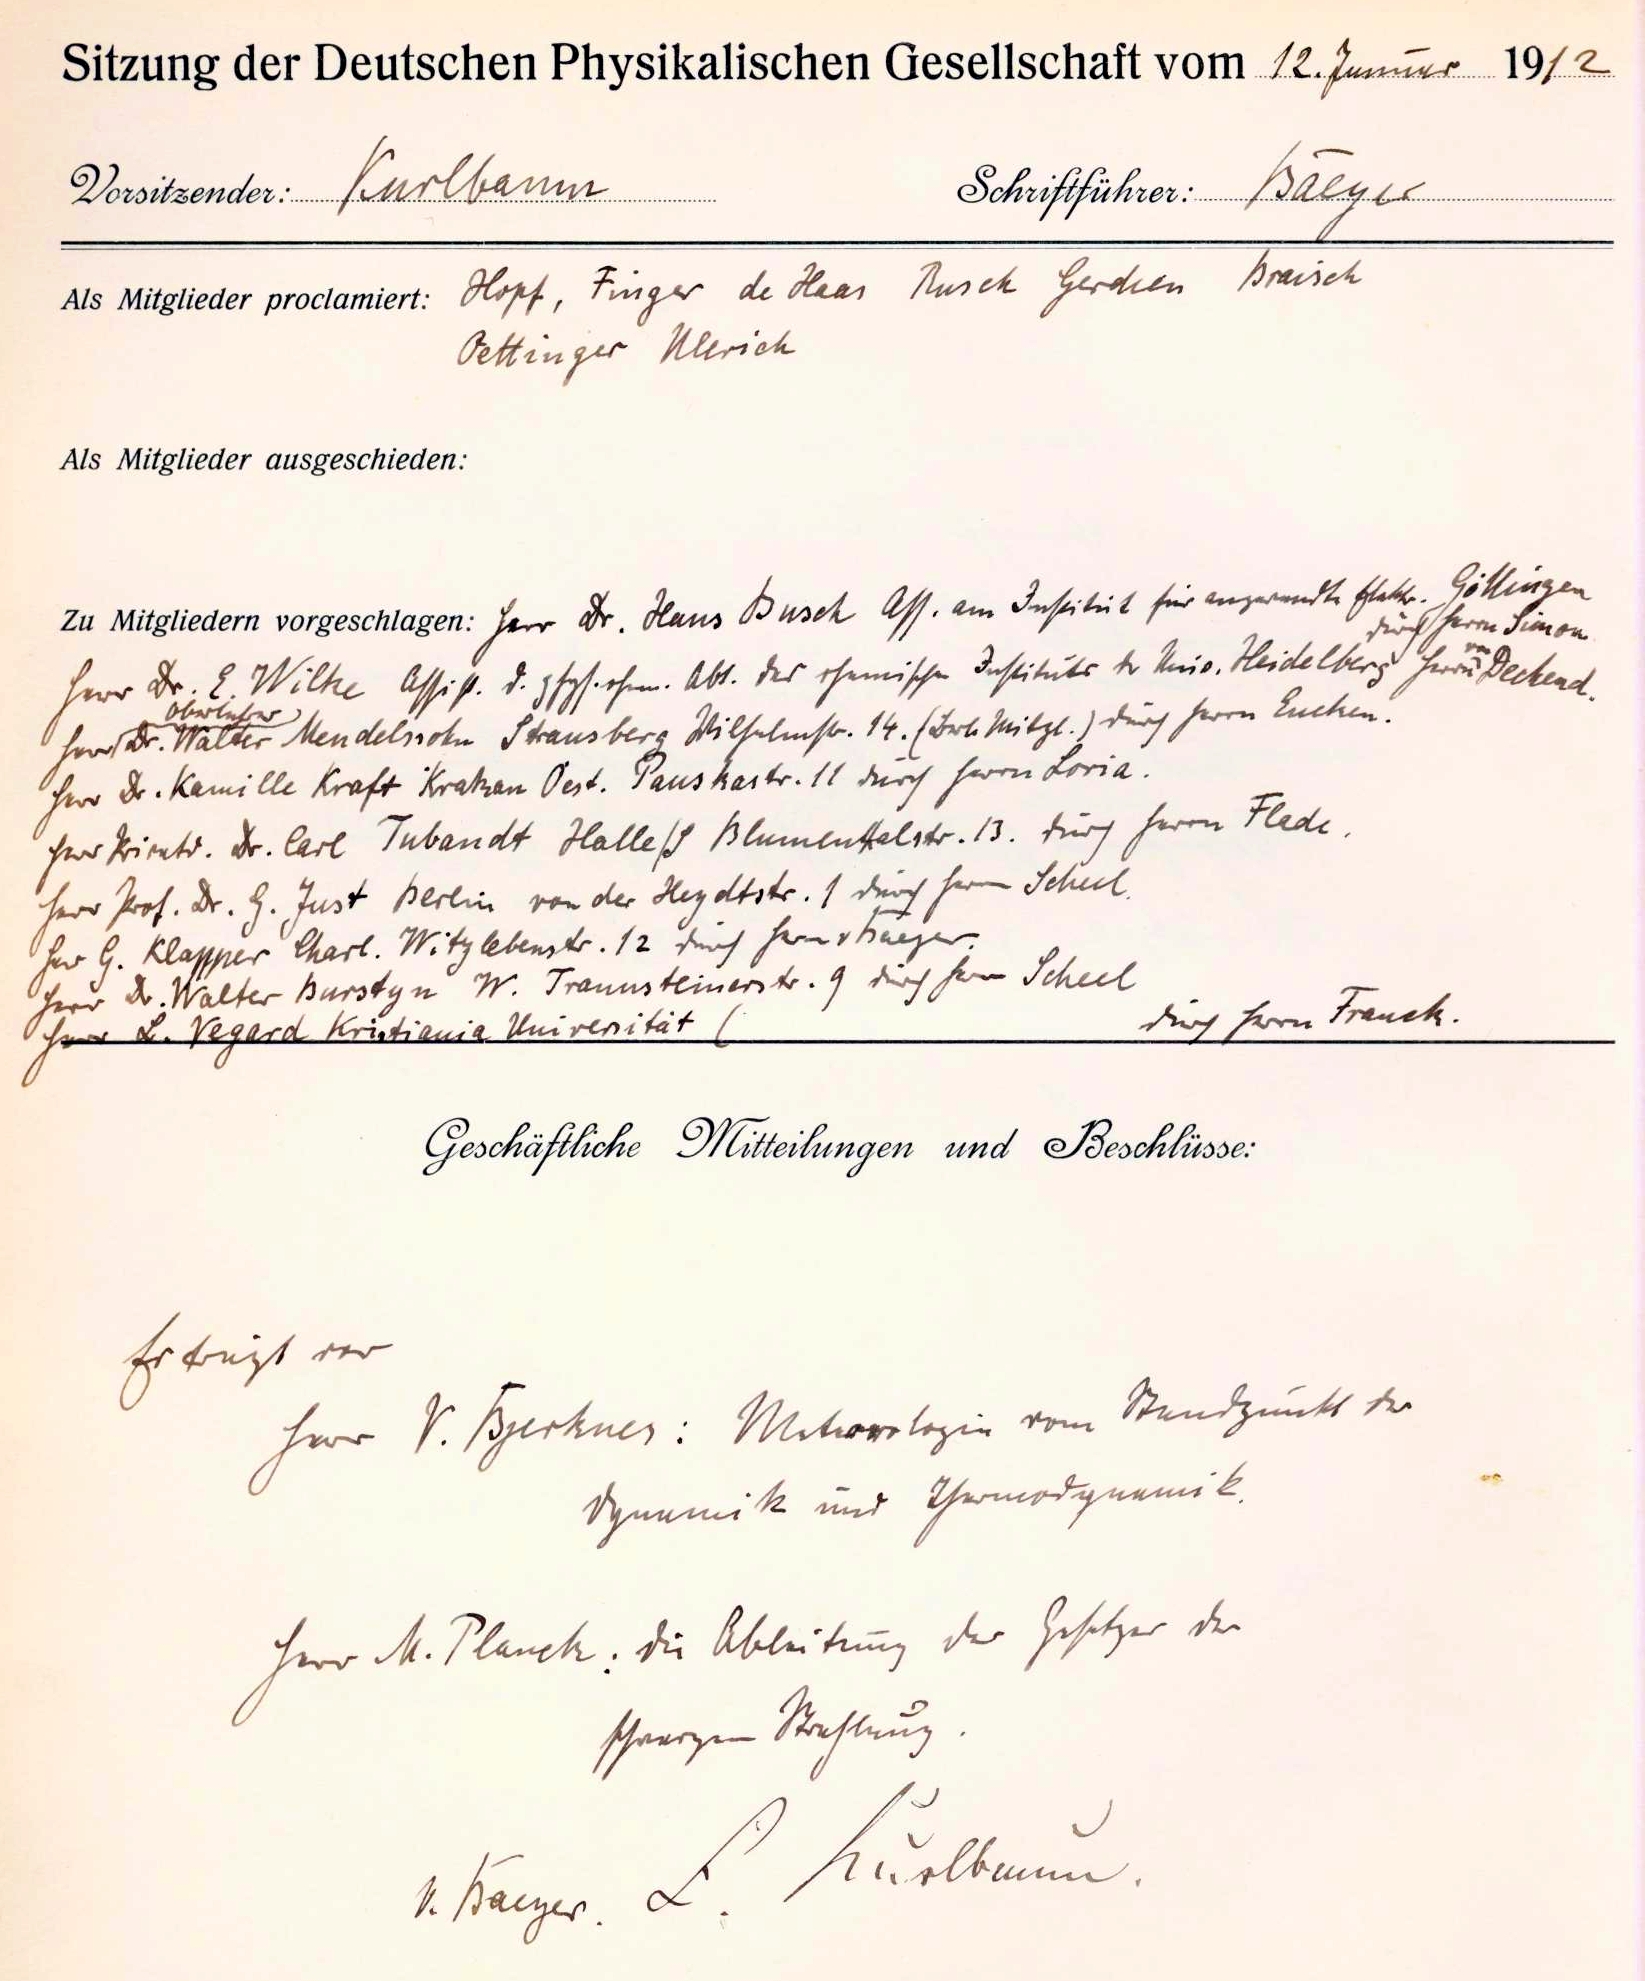 Sitzung der Deutschen Physikalischen Gesellschaft vom 12. Januar 1912
Vorsitzender: Kurlbaum Schriftführer: Baeyer
Als Mitglieder proclamiert: Hopf, Finger de Haas Rusch Gerdien Braisch
Oettinger Ullrich
Als Mitglieder ausgeschieden:
Zu Mitgliedern vorgeschlagen: Herr Dr. Hans Busch Ass. am Institut für angewandte Elektr. Göttingen
durch Herrn Simon
Herr Dr. E. Wilke Assist. d. phys. chem. Abt. des chemischen Instituts der Univ. Heidelberg Herrn von Deckend.
Oberlehrer
Herr Dr. Walter Mendelssohn Strausberg Wilhelmstr. 14. durch Herrn Eucken.
Herr Dr. Kamille Kraft Krakau Oest. Panskastr. 11 durch Herrn Loria.
Herr Privatd. Dr. Carl Tubandt Halle/S Blumenthalstr. 13. durch Herrn Flade.
Herr Prof. Dr. G. Just Berlin von der Heydtstr. 1 durch Herrn Scheel.
Herr G. Klapper Charl. Witzlebenstr. 12 durch Herrn v Baeyer.
Herr Dr. Walter Burstyn W. Traunsteinerstr. 9 durch Herrn Scheel
Herr L. Vegard Kristiania Universität ( durch Herrn Franck.
Geschäftliche Mitteilungen und Beschlüsse:
Es trägt vor
Herr V. Bjerknes: Meteorologie vom Standpunkt der
Dynamik und Thermodynamik.
Herr M. Planck: die Ableitung der Gesetze der
schwarzen Strahlung.
v. Baeyer. F. Kurlbaum.